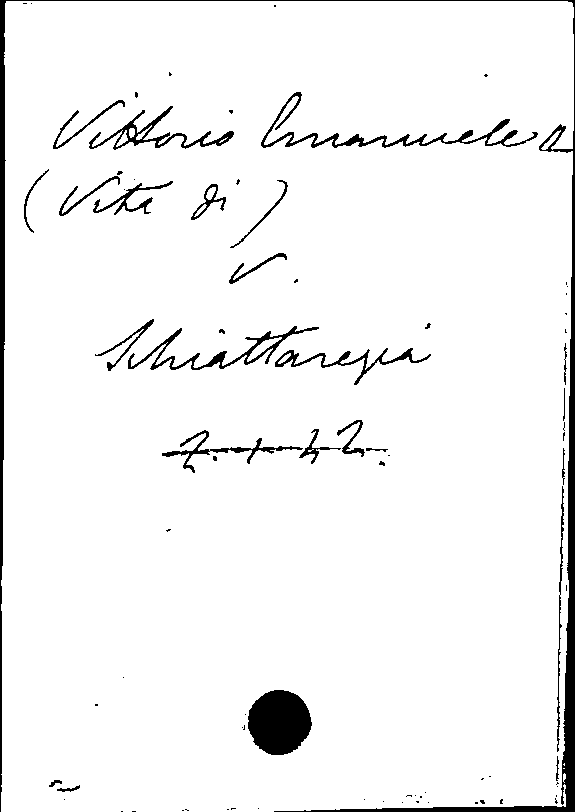 Vittorio Emanuele II
(Vita di)
V.
Schiattaregia